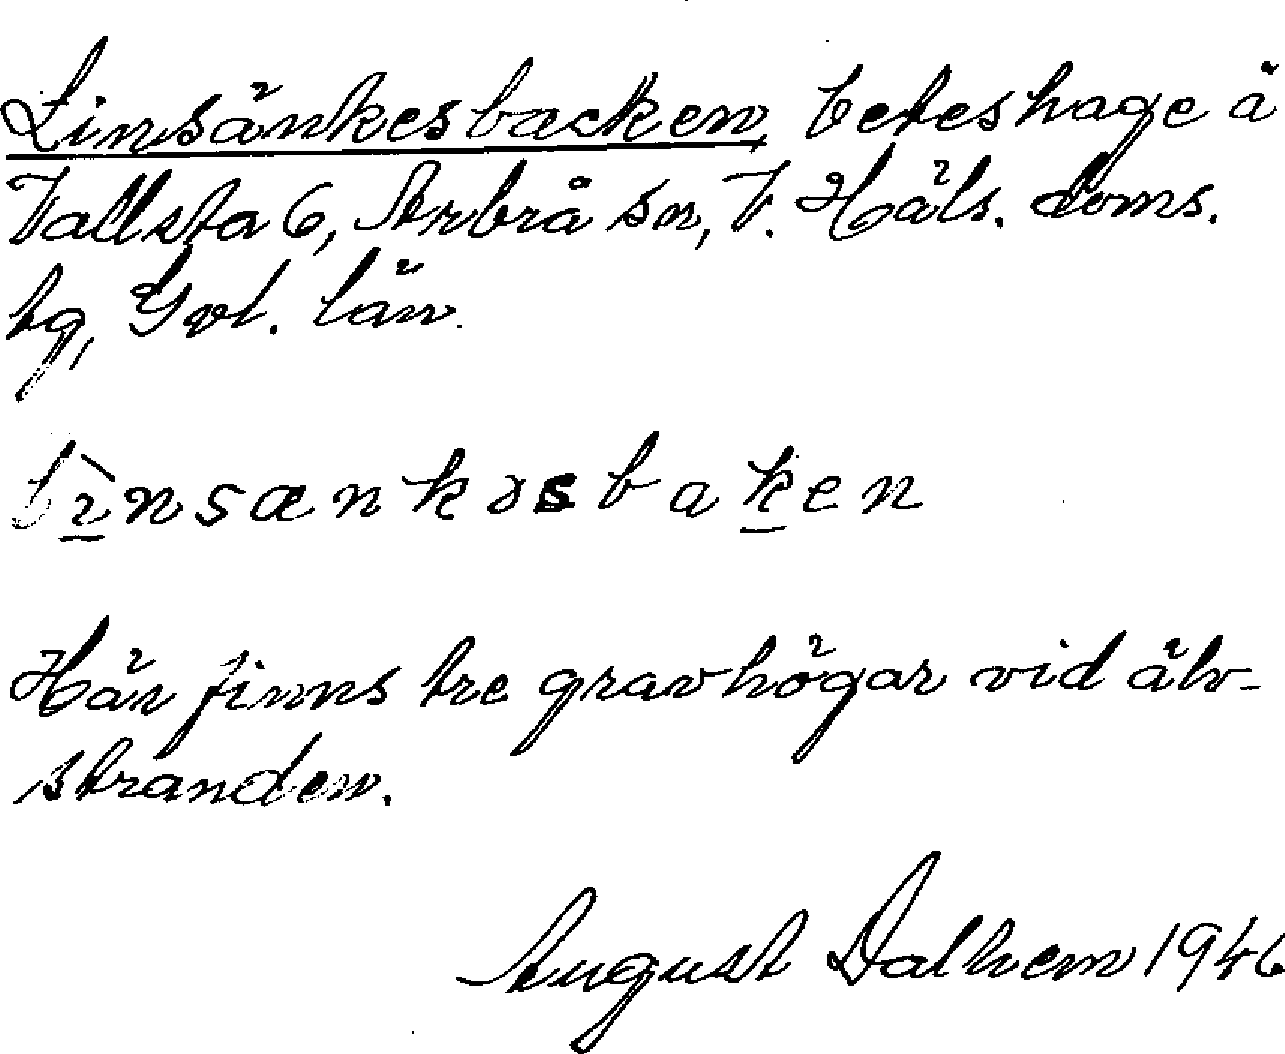 Linsänkesbacken, beteshage å
Vallsta 6, Arbrå sn, V. Häls. doms.
tg, Gvl. län.
lìnsænkəsbaken
Här finns tre gravhögar vid älv-
stranden.
August Dalhem 1946